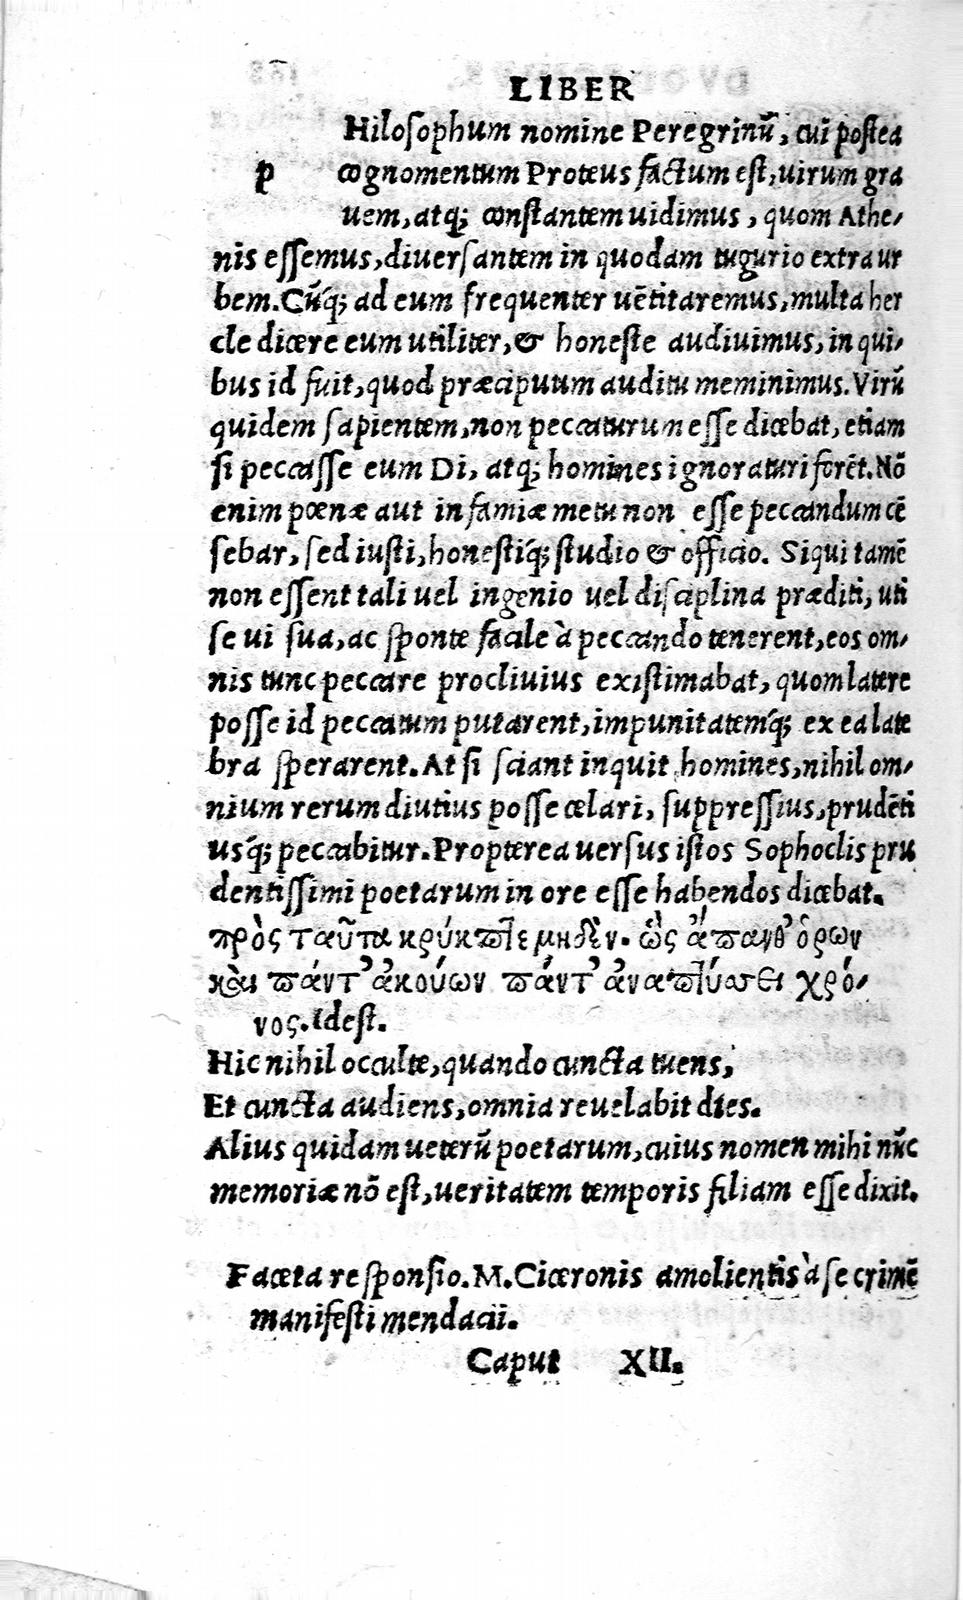 LIBER
Hilosophum nomine Peregrinũ, cui postea
p cognomentum Proteus factum est, uirum gra
uem, atq; constantem uidimus, quom Athe-
nis essemus, diuersantem in quodam tugurio extra ur
bem. Cũq́; ad eum frequenter uẽtitaremus, multa her
cle dicere eum utiliter, & honeste audiuimus, in qui-
bus id fuit, quod præcipuum auditu meminimus. Virũ
quidem sapientem, non peccaturum esse dicebat, etiam
si peccasse eum Di, atq; homines ignoraturi forẽt. Nõ
enim pœnæ aut infamiæ metu non esse peccandum cẽ
sebar, sed iusti, honestiq́; studio & officio. Siqui tamẽ
non essent tali uel ingenio uel disciplina præditi, uti
se ui sua, ac sponte facile à peccando tenerent, eos om-
nis tunc peccare procliuius existimabat, quom latere
posse id peccatum putarent, impunitatemq́; ex ea late
bra sperarent. At si sciant inquit homines, nihil om-
nium rerum diutius posse celari, suppressius, prudẽti
usq́; peccabitur. Propterea uersus istos Sophoclis pru
dentissimi poetarum in ore esse habendos dicebat.
πρὸς ταῦτα κρύκπτε μηδὲν. ὡς ἅπανθ᾽ ὁρων
καὶ πάντ᾽ ἀκούων πάντ᾽ ἀναπτύσσει χρό-
νος. Idest.
Hic nihil occulte, quando cuncta tuens,
Et cuncta audiens, omnia reuelabit dies.
Alius quidam ueterũ poetarum, cuius nomen mihi nũc
memoriæ nõ est, ueritatem temporis filiam esse dixit.
Faceta responsio. M. Ciceronis amolientis à se crimẽ
manifesti mendacii.
Caput XII.